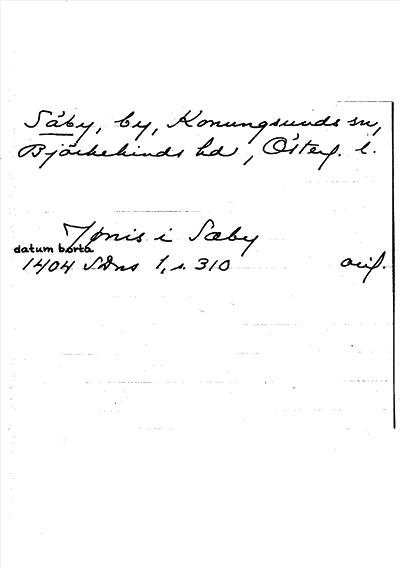 Säby, by, Konungsunds sn,
Björkekinds hd, Österg. l.
Jønis i Sæby
datum borta
1404 SDns 1, s. 310 orig.